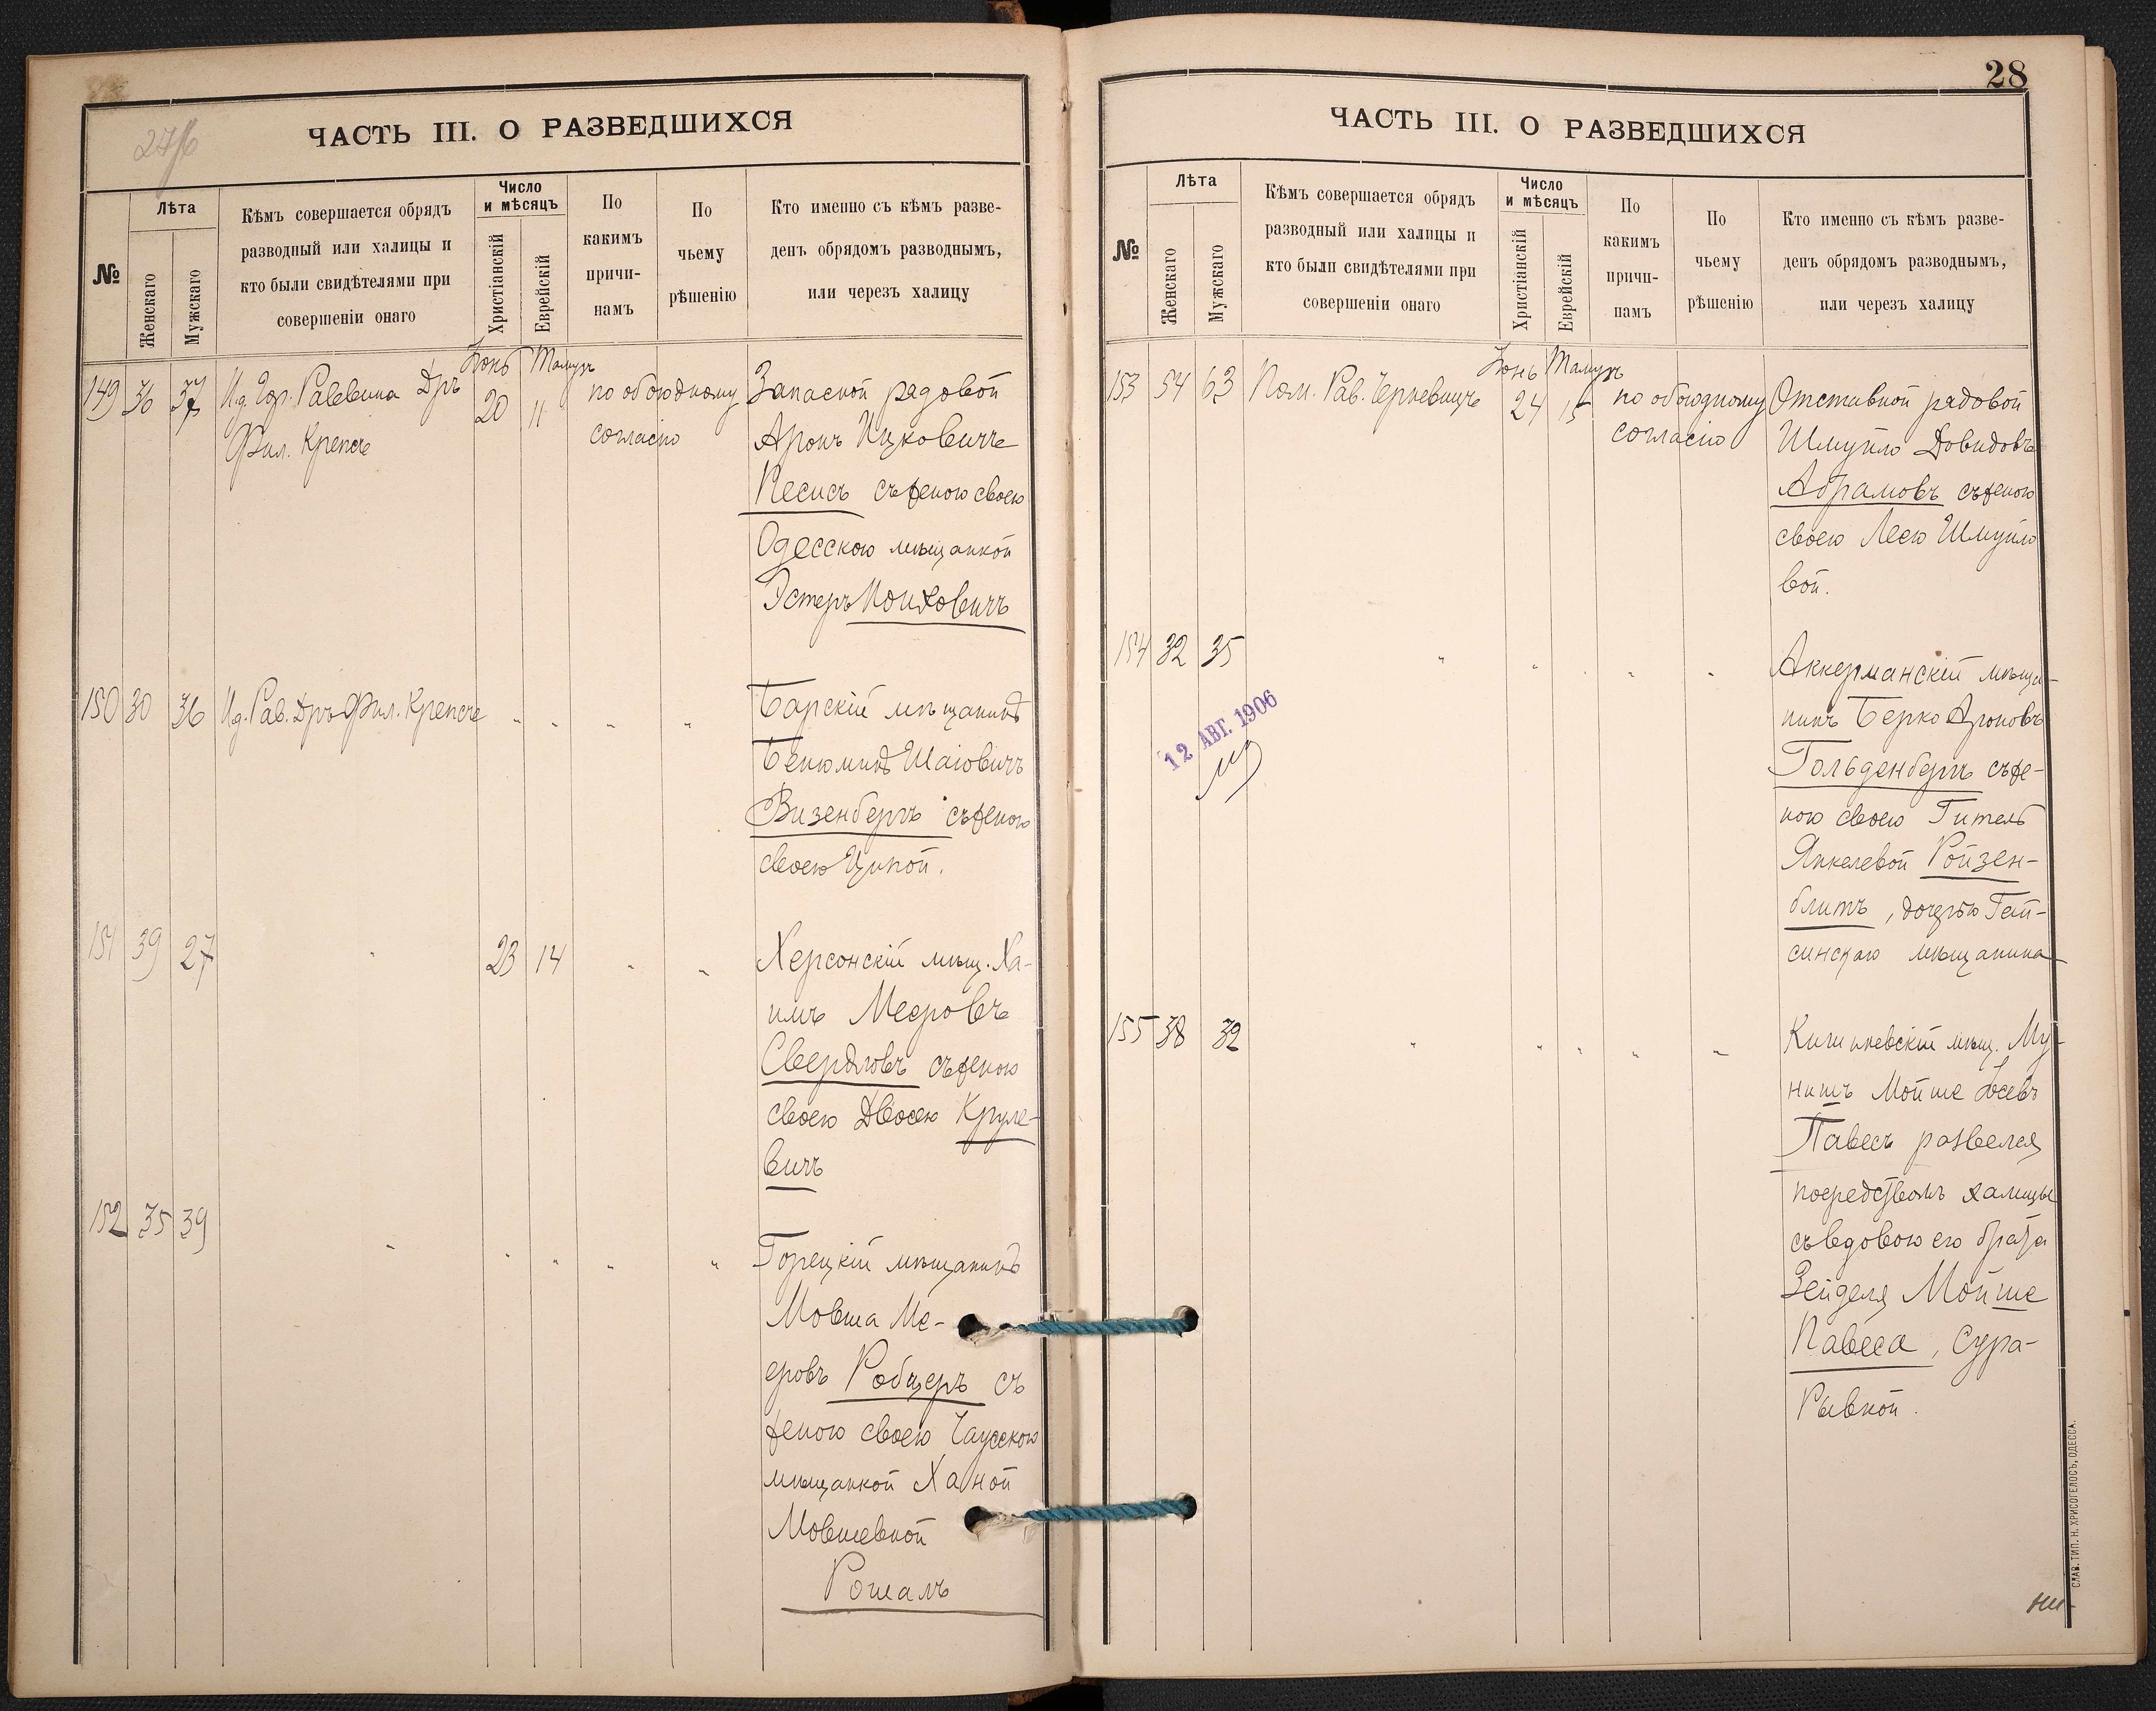 ЧАСТЬ III. О РАЗВЕДШИХСЯ
№
Лѣта
Женскаго
Мужскаго
Кѣмъ совершается обрядъ
разводный или халицы и
кто были свидѣтелями при
совершеніи онаго
Число
и мѣсяцъ
Христіанскій
Еврейскій
По
какимъ
причи-
намъ
По
чьему
рѣшенію
Кто именно съ кѣмъ разве-
денъ обрядомъ разводнымъ,
или черезъ халицу
Іюнь Тамузъ
149 36 37 И.д. Гор. Раввина Дръ 20 11 по обоюдному Запасной рядовой
Фил. Крепсъ согласію Аронъ Ицковичъ
Песисъ съ женою своею
Одесскою мѣщанкой
Эстеръ Моихович
150 30 36 И.д. Рав. Дръ Фил. Крепсъ " " " Барскій мѣщанинъ
Бенюминъ Шаіовичъ
Визенбергъ съ женою
своею Ципой.
151 39 27 " 23 14 " " Херсонскій мѣщ. Ха-
имъ Мееровъ
Свердловъ съ женою
своею Двосею Круле-
вичъ
152 35 39 " " " " " Горецкій мѣщанинъ
Мовша Ме-
еровъ Робцеръ съ
женою своею Чаусскою
мѣщанкой Ханой
Мовшевной
Рошаль
28
ЧАСТЬ III. О РАЗВЕДШИХСЯ
№
Лѣта
Женскаго
Мужскаго
Кѣмъ совершается обрядъ
разводный или халицы и
кто были свидѣтелями при
совершеніи онаго
Число
и мѣсяцъ
Христіанскій
Еврейскій
По
какимъ
причи-
намъ
По
чьему
рѣшенію
Кто именно съ кѣмъ разве-
денъ обрядомъ разводнымъ,
или черезъ халицу
Іюнь Тамузъ
153 54 63 Пом. Рав. Черкевицъ 24 15 по обоюдному Отставной рядовой
согласію Шмуйло Довидовъ
Абрамовъ съ женою
своею Леею Шмуйло
вой.
154 32 35 " " " " Аккерманскій мѣща-
нинъ Берко Ароновъ
Гольденбергъ съ же-
ною своею Гитель
Янкелевой Ройзен-
блитъ, дочерью Гай-
синскаго мѣщанина
12 АВГ. 1906
155 38 32 " " " " " Кишиневскій мѣщ. Му-
нишъ Мойше Іосевъ
Павесъ развелся
посредствомъ халицы
съ вдовою его брата
Зейделя Мойше
Павеса, Сура-
Рывкой.
СЛАВ. ТИП. Н. ХРИСОГЕЛОСЪ, ОДЕССА.